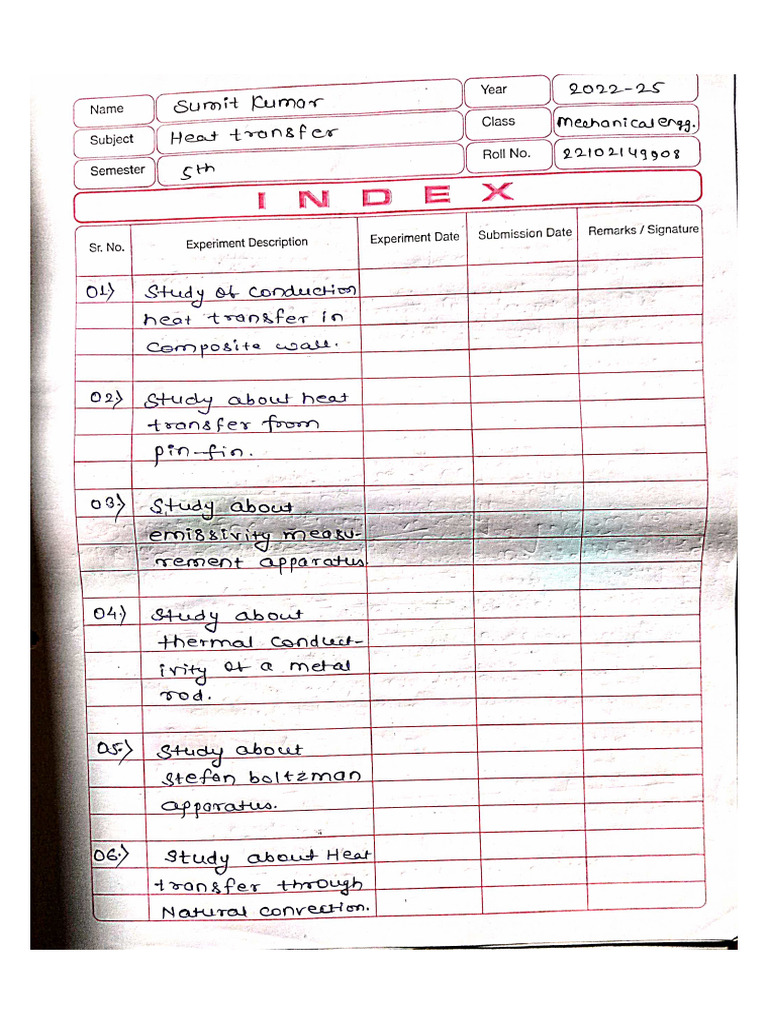 Name Sumit Kumar Year 2022-25
Subject Heat transfer Class Mechanical engg.
Semester 5th Roll No. 22102149908
INDEX
Sr. No. Experiment Description Experiment Date Submission Date Remarks / Signature
01) Study of conduction
heat transfer in
composite wall.
02.) Study about heat
transfer from
pin-fin.
03.) Study about
emissivity measu-
rement apparatus.
04.) Study about
thermal conduct-
ivity of a metal
rod.
05.) Study about
stefan boltzman
apparatus.
06.) Study about Heat
transfer through
Natural convection.